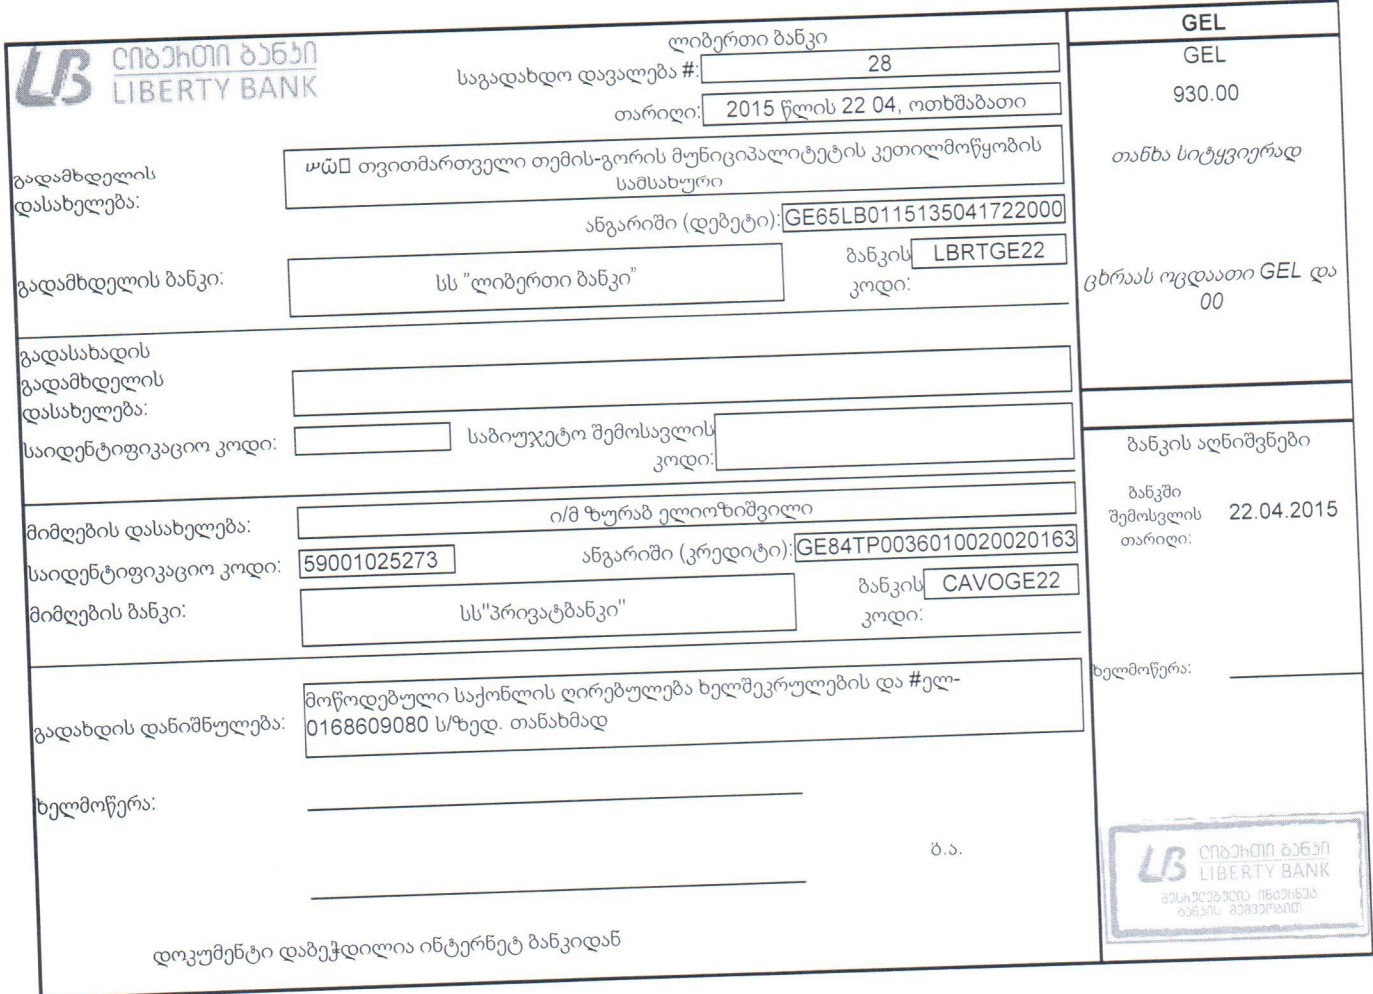 ლიბერთი ბანკი
LIBERTY BANK
ლიბერთი ბანკი
საგადახდო დავალება #: 28
თარიღი: 2015 წლის 22 04, ოთხშაბათი
გადამხდელის
დასახელება:
თვითმართველი თემის-გორის მუნიციპალიტეტის კეთილმოწყობის
სამსახური
ანგარიში (დებეტი): GE65LB0115135041722000
გადამხდელის ბანკი: სს "ლიბერთი ბანკი"
ბანკის LBRTGE22
კოდი:
გადასახადის
გადამხდელის
დასახელება:
საიდენტიფიკაციო კოდი:
საბიუჯეტო შემოსავლის
კოდი:
მიმღების დასახელება: ი/მ ზურაბ ელიოზიშვილი
საიდენტიფიკაციო კოდი: 59001025273 ანგარიში (კრედიტი): GE84TP0036010020020163
მიმღების ბანკი: სს"პრივატბანკი"
ბანკის CAVOGE22
კოდი:
გადახდის დანიშნულება:
მოწოდებული საქონლის ღირებულება ხელშეკრულების და #ელ-
0168609080 ს/ზედ. თანახმად
ხელმოწერა:
ბ.ა.
დოკუმენტი დაბეჭდილია ინტერნეტ ბანკიდან
GEL
GEL
930.00
თანხა სიტყვიერად
ცხრაას ოცდაათი GEL და
00
ბანკის აღნიშვნები
ბანკში
შემოსვლის 22.04.2015
თარიღი:
ხელმოწერა:
ლიბერთი ბანკი
LIBERTY BANK
შესრულებულია ინტერნეტ
ბანკის მეშვეობით